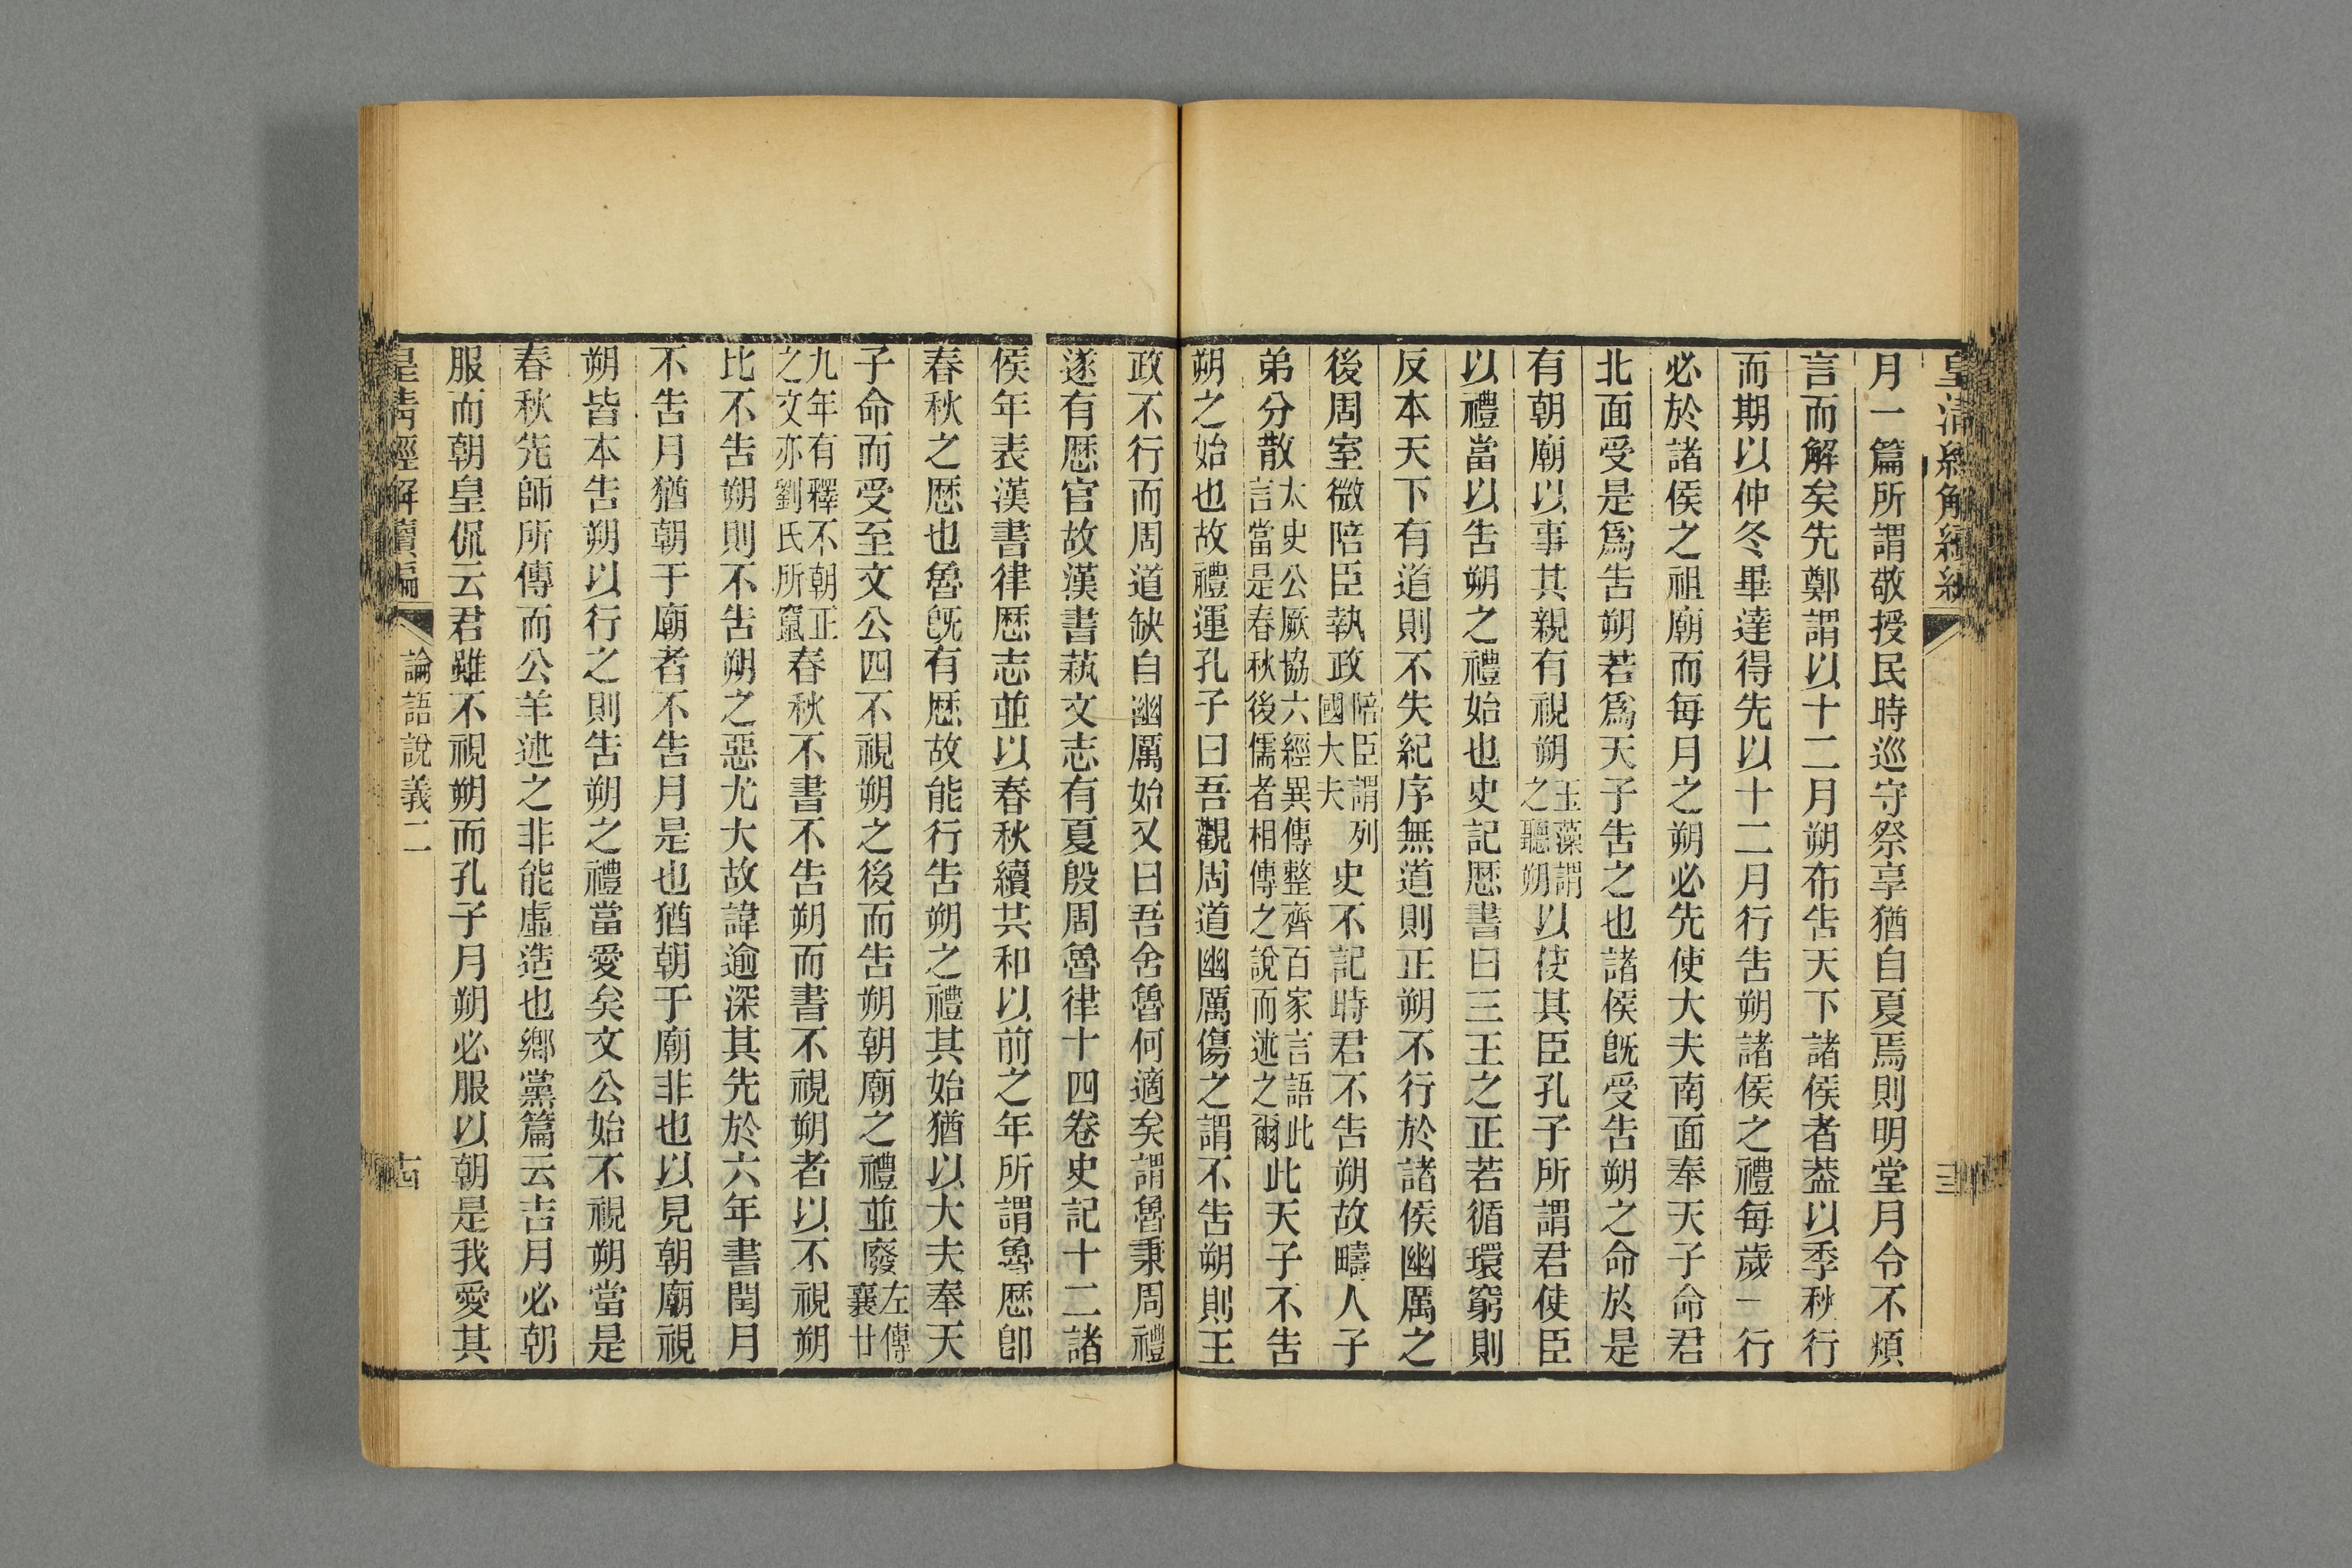 皇清經解續編
月一篇所謂敬授民時巡守祭享猶自夏焉則明堂月令不煩
言而解矣先鄭謂以十二月朔布告天下諸侯者葢以季秋行
而期以仲冬畢達得先以十二月行告朔諸侯之禮每歲一行
必於諸侯之祖廟而每月之朔必先使大夫南面奉天子命君
北面受是爲告朔若爲天子告之也諸侯旣受告朔之命於是
有朝廟以事其親有視朔玉藻謂之聽朔以使其臣孔子所謂君使臣
以禮當以告朔之禮始也史記厯書曰三王之正若循環窮則
反本天下有道則不失紀序無道則正朔不行於諸侯幽厲之
後周室微陪臣執政陪臣謂列國大夫史不記時君不告朔故疇人子
弟分散太史公厥協六經異傳整齊百家言語此言當是春秋後儒者相傳之說而述之爾此天子不告
朔之始也故禮運孔子曰吾觀周道幽厲傷之謂不告朔則王
政不行而周道缺自幽厲始又曰吾舍魯何適矣謂魯秉周禮
遂有厯官故漢書蓺文志有夏殷周魯律十四卷史記十二諸
侯年表漢書律厯志並以春秋續共和以前之年所謂魯厯卽
春秋之厯也魯旣有厯故能行告朔之禮其始猶以大夫奉天
子命而受至文公四不視朔之後而告朔朝廟之禮並廢左傳襄廿
九年有釋不朝正之文亦劉氏所竄春秋不書不告朔而書不視朔者以不視朔
比不告朔則不告朔之惡尤大故諱逾深其先於六年書閏月
不告月猶朝于廟者不告月是也猶朝于廟非也以見朝廟視
朔皆本告朔以行之則告朔之禮當愛矣文公始不視朔當是
春秋先師所傳而公羊述之非能虛造也鄉黨篇云吉月必朝
服而朝皇侃云君雖不視朔而孔子月朔必服以朝是我愛其
皇清經解續編 論語說義二 十四